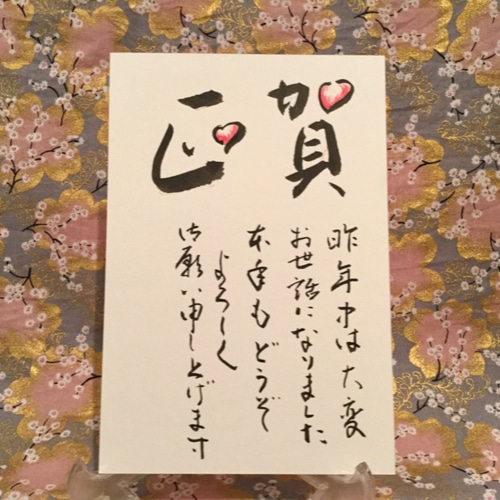 賀正
昨年中は大変
お世話になりました
本年もどうぞ
よろしく
御願い申し上げます